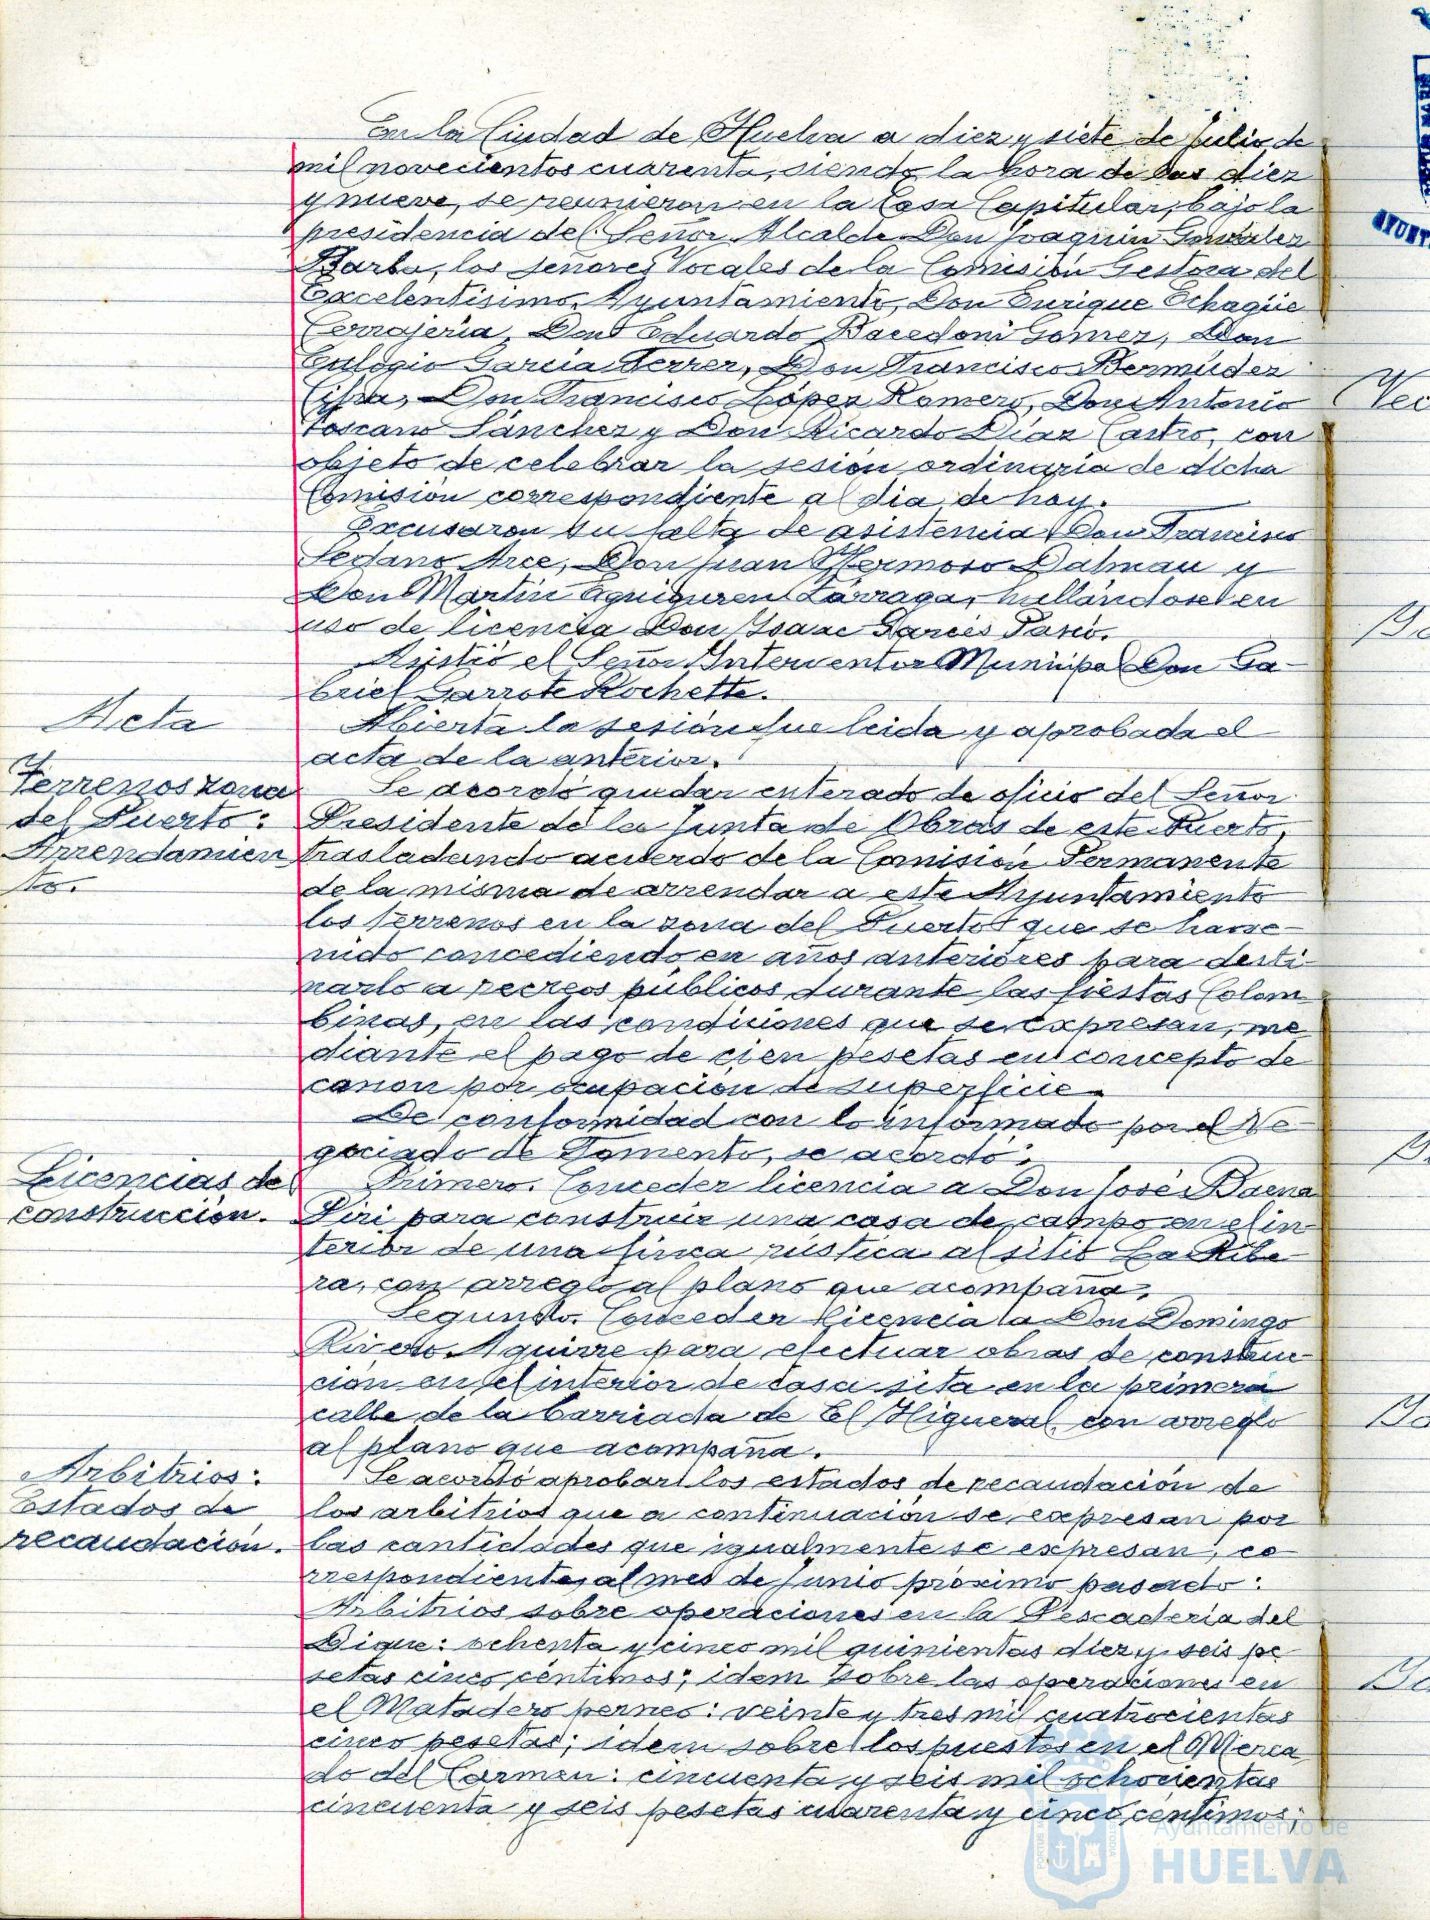 En la Ciudad de Huelva a diez y siete de Julio de
mil novecientos cuarenta, siendo la hora de las diez
y nueve, se reunieron en la Casa Capitular, bajo la
presidencia del Señor Alcalde Don Joaquin González
Barba, los señores Vocales de la Comisión Gestora del
Excelentísimo Ayuntamiento, Don Enrique Echagüe
Cerrajería, Don Eduardo Bacedoni Gómez, Don
Eulogio García Ferrer, Don Francisco Bermúdez
Cifra, Don Francisco López Romero, Don Antonio
Toscano Sánchez y Don Ricardo Díaz Castro, con
objeto de celebrar la sesión ordinaria de dicha
Comisión correspondiente al dia de hoy.
Excusaron su falta de asistencia Don Francisco
Sedano Arce, Don Juan Hermoso Dalmau y
Don Martín Eguiguren Lárraga, hallándose en
uso de licencia Don Isaac Garcés
Asistió el Señor Interventor Municipal Don Ga-
briel Garrote Rochette.
Acta
Abierta la sesión fue leida y aprobada el
acta de la anterior.
Terrenos zona
del Puerto:
Arrendamien
to.
Se acordó quedar enterado de oficio del Señor
Presidente de la Junta de Obras de este Puerto,
trasladando acuerdo de la Comisión Permanente
de la misma de arrendar a este Ayuntamiento
los terrenos en la zona del Puerto que se han ve-
nido concediendo en años anteriores para desti-
narlo a recreos públicos durante las fiestas Colom-
binas, en las condiciones que se expresan, me
diante el pago de cien pesetas en concepto de
canon por ocupación de superficie.
De conformidad con lo informado por el Ne-
gociado de Fomento, se acordó:
Licencias de
construcción.
Primero. Conceder licencia a Don José Baena
Piri para construir una casa de campo en el in-
terior de una finca rústica al sitio La Ribe-
ra, con arreglo al plano que acompaña.
Segundo. Conceder licencia a Don Domingo
Rivero Aguirre para efectuar obras de construc-
ción en el interior de casa sita en la primera
calle de la barriada de El Higueral, con arreglo
al plano que acompaña.
Arbitrios:
Estados de
recaudación.
Se acordó aprobar los estados de recaudación de
los arbitrios que a continuación se expresan por
las cantidades que igualmente se expresan, co
rrespondientes al mes de Junio próximo pasado:
Arbitrios sobre operaciones en la Pescadería del
Dique: ochenta y cinco mil quinientas diez y seis pe
setas cinco céntimos; idem sobre las operaciones en
el Matadero perneo: veinte y tres mil cuatrocientas
cinco pesetas; idem sobre los puestos en el Merca
do del Carmen: cincuenta y seis mil ochocientas
cincuenta y seis pesetas cuarenta y cinco céntimos;
Ayuntamiento de
HUELVA